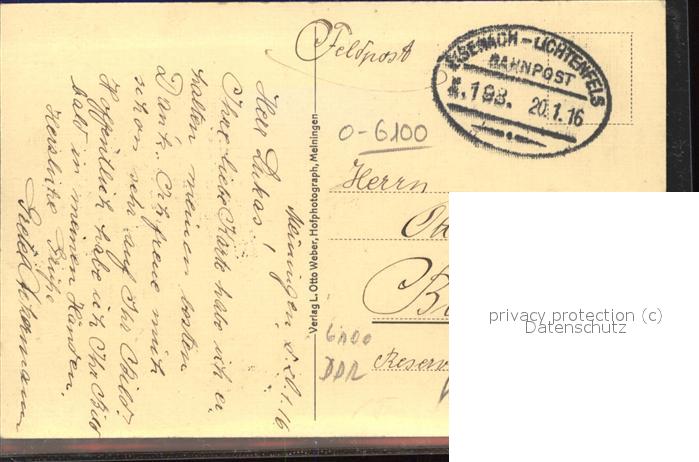 Feldpost
EISENACH - LICHTENFELS
BAHNPOST
Z.198. 20.1.16
0-6100
Herrn
Reserv
6100
DDR
Verlag L. Otto Weber, Hofphotograph, Meiningen
Meiningen, d. 20.1.16
Herr Lukas!
Ihre liebe Karte habe ich er
halten meinen besten
Dank. Ich freue mich
schon sehr auf Ihr Bild.
Hoffentlich habe ich Ihr Bild
bald in meinen Händen.
Herzliche Grüße
privacy protection (c)
Datenschutz